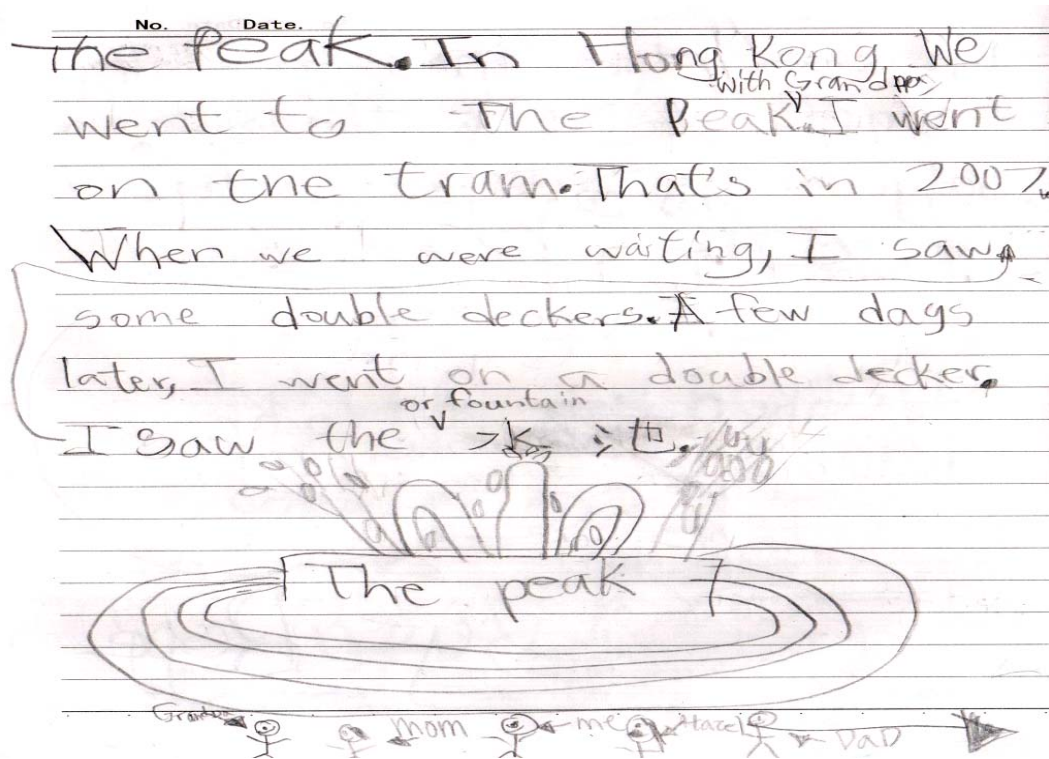 No. Date.
The Peak. In Hong Kong We
with Grandpa
went to The Peak. I went
on the tram. That's in 2007.
When we were waiting, I saw
some double deckers. A few days
later, I went on a double decker.
or fountain
I saw the 水池.
The peak
Grandpa mom me Hazel DaD